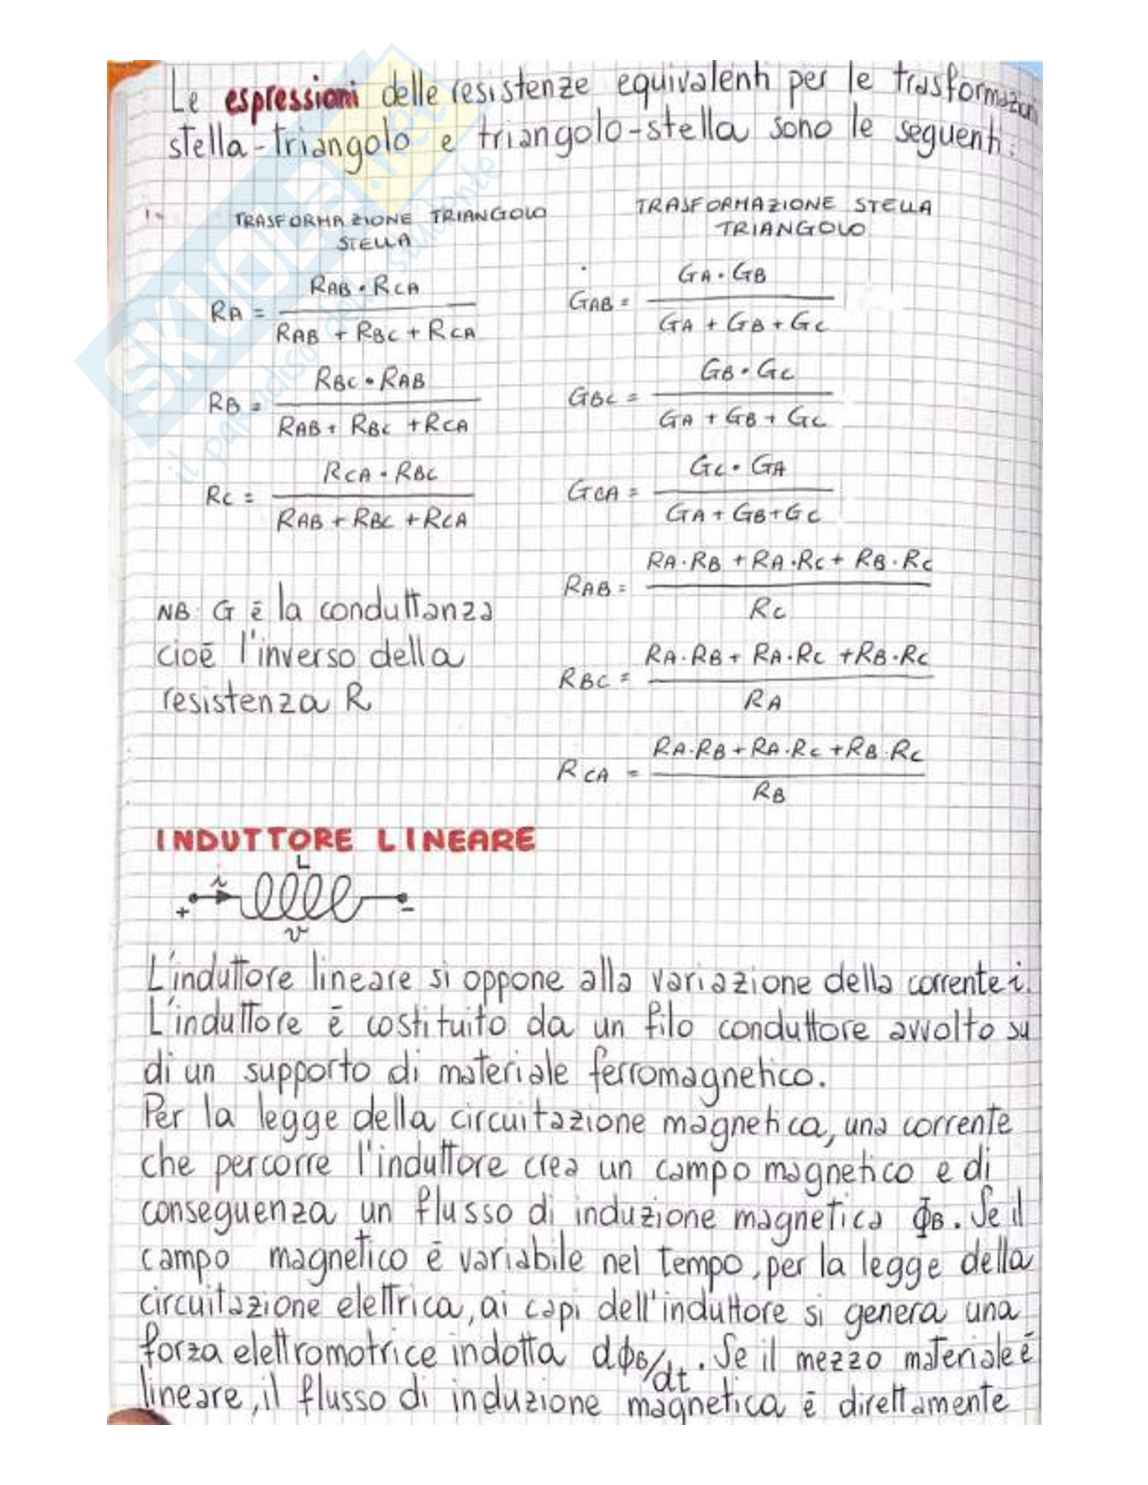 Le espressioni delle resistenze equivalenti per le trasformazioni
stella-triangolo e triangolo-stella sono le seguenti:
TRASFORMAZIONE TRIANGOLO
STELLA
RA = RAB · RCA / RAB + RBC + RCA
RB = RBC · RAB / RAB + RBC + RCA
RC = RCA · RBC / RAB + RBC + RCA
NB: G è la conduttanza
cioè l'inverso della
resistenza R
TRASFORMAZIONE STELLA
TRIANGOLO
GAB = GA · GB / GA + GB + GC
GBC = GB · GC / GA + GB + GC
GCA = GC · GA / GA + GB + GC
RAB = RA · RB + RA · RC + RB · RC / RC
RBC = RA · RB + RA · RC + RB · RC / RA
RCA = RA · RB + RA · RC + RB · RC / RB
INDUTTORE LINEARE
L
i
+ -
v
L'induttore lineare si oppone alla variazione della corrente i.
L'induttore è costituito da un filo conduttore avvolto su
di un supporto di materiale ferromagnetico.
Per la legge della circuitazione magnetica, una corrente
che percorre l'induttore crea un campo magnetico e di
conseguenza un flusso di induzione magnetica ΦB. Se il
campo magnetico è variabile nel tempo, per la legge della
circuitazione elettrica, ai capi dell'induttore si genera una
forza elettromotrice indotta dΦB/dt. Se il mezzo materiale è
lineare, il flusso di induzione magnetica è direttamente
SKUOLA.net
il paradiso dello studente